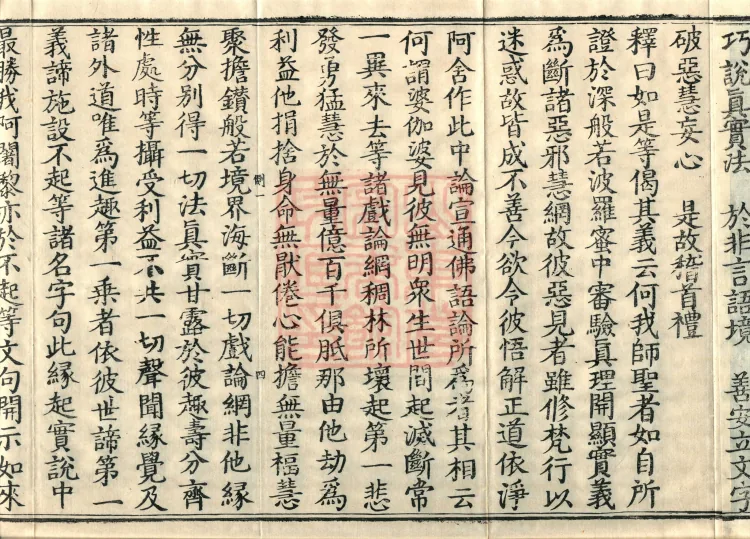 巧說真實法　於非言語境　善安立文字
破惡慧妄心　是故稽首禮
釋曰如是等偈其義云何我師聖者如自所
證於深般若波羅蜜中審驗真理開顯實義
為斷諸惡邪慧網故彼惡見者雖修梵行以
迷惑故皆成不善今欲令彼悟解正道依淨
阿含作此中論宣通佛語論所為者其相云
何謂婆伽婆見彼無明衆生世間起滅斷常
一異來去等諸戲論網稠林所壞起第一悲
發勇猛慧於無量億百千俱胝那由他劫為
利益他捐捨身命無猒倦心能擔無量福慧
四
聚擔鑽般若境界海斷一切戲論網非他緣
無分別得一切法真實甘露於彼趣壽分齊
性處時等攝受利益不共一切聲聞緣覺及
諸外道唯為進趣第一乘者依彼世諦第一
義諦施設不起等諸名字句此緣起實說中
最勝我阿闍黎亦於不起等文句開示如來